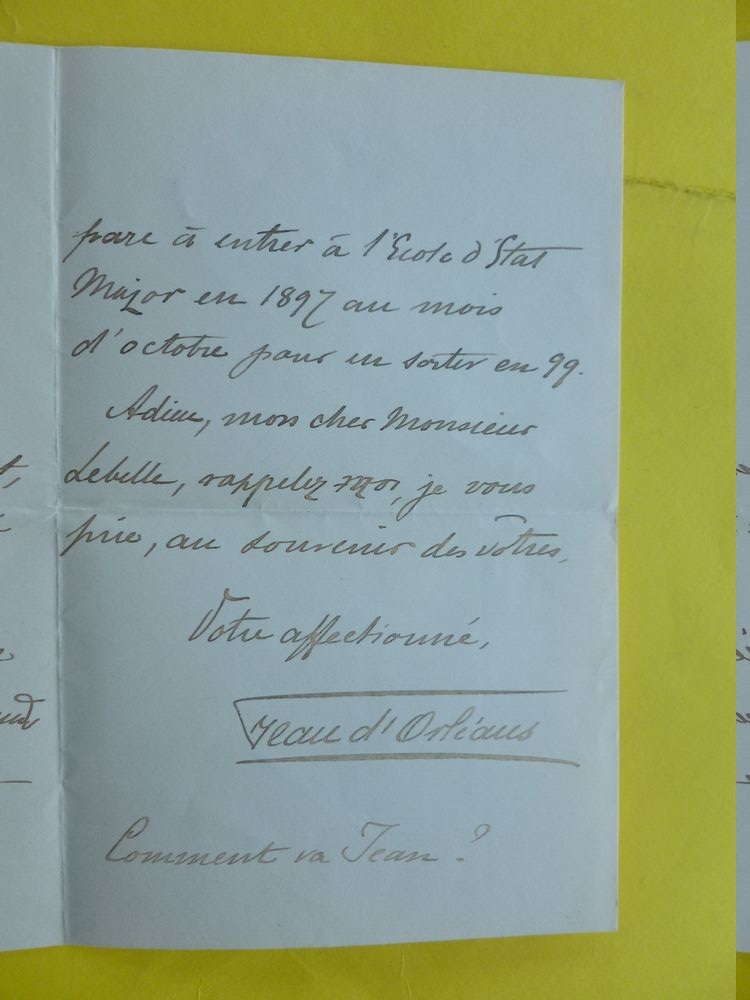 pare à entrer à l'Ecole d'Etat
Major en 1897 au mois
d'octobre pour en sortir en 99.
Adieu, mon cher Monsieur
Lebelle, rappelez moi, je vous
prie, au souvenir des vôtres,
Votre affectionné,
Jean d'Orléans
Comment va Jean ?